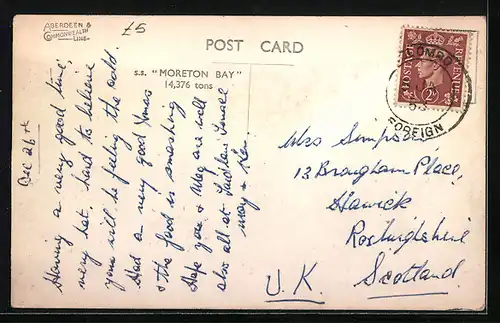 ABERDEEN &
COMMONWEALTH
LINE
£5
POST CARD
S.S. "MORETON BAY"
14,376 tons
POSTAGE
REVENUE
FOREIGN
Dec 26th
Having a very good time,
very hot, hard to believe
you will be feeling the cold.
Had a very good Xmas
& the food is smashing
Hope you & Meg are well
also all at
May & Ken.
Mrs Simpson,
13 Brougham Place,
Hawick
Roxburghshire
Scotland.
U.K.